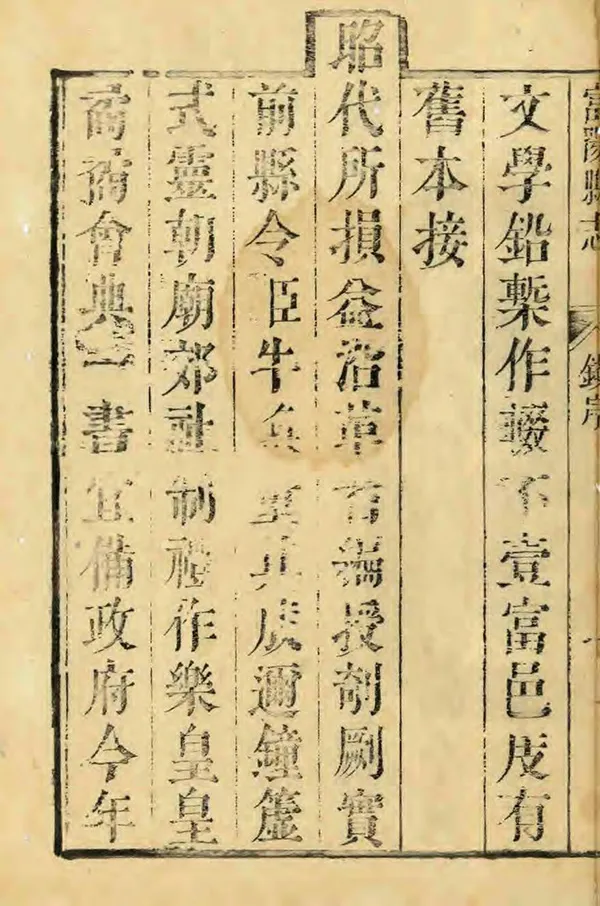 富陽縣志
序
文學鉛槧作輟不壹富邑庋有
舊本接
昭代所損益沿革 編授剞劂實
前縣令臣牛奐 其庋邇鐘簴
式靈朝廟郊社制禮作樂皇皇
矞矞會典一書宜備政府今年